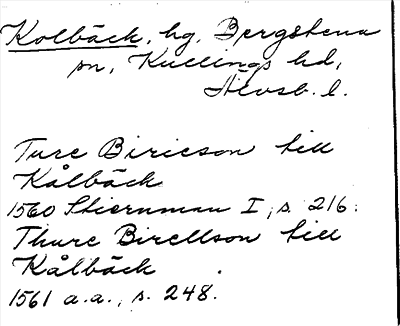 Kolbäck, hg, Bergstena
sn, Kullings hd,
Älvsb. l.
Ture Biricson till
Kålbäck
1560 Stiernman I, s. 216.
Thure Birellson till
Kålbäck
1561 a.a., s. 248.